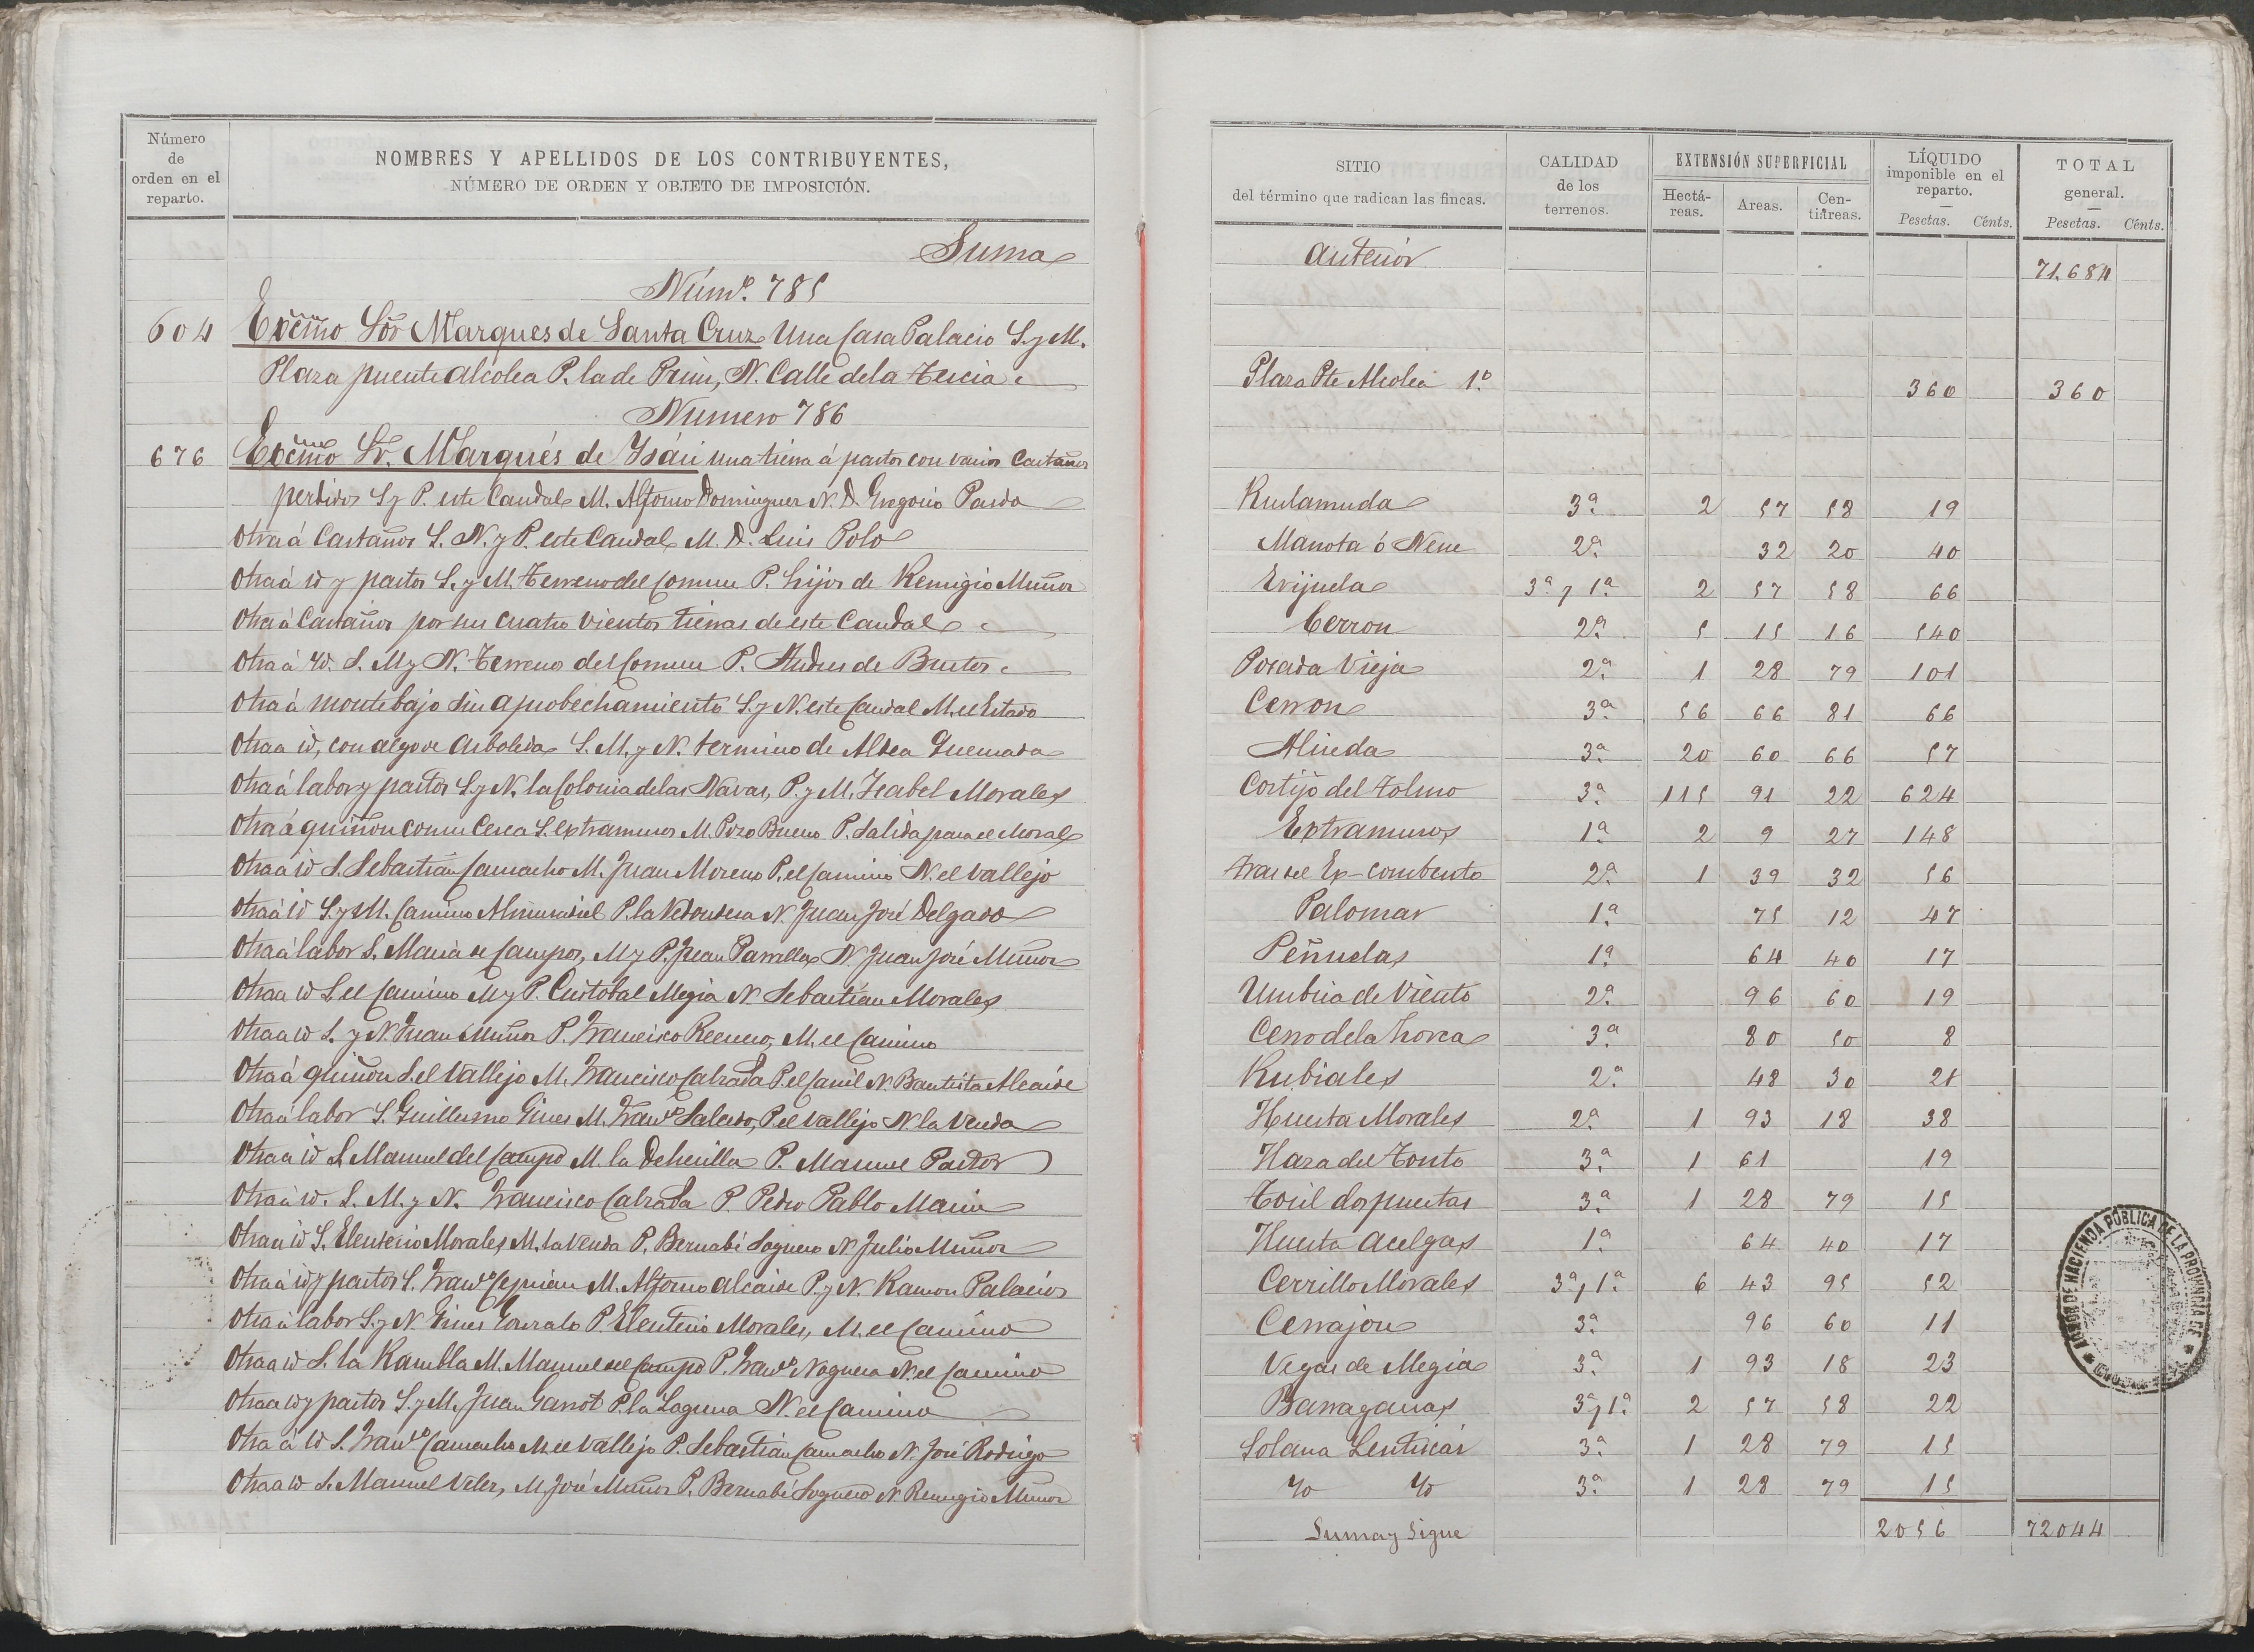 Número
de
orden en el
reparto.
NOMBRES Y APELLIDOS DE LOS CONTRIBUYENTES,
NÚMERO DE ORDEN Y OBJETO DE IMPOSICIÓN.
Suma
Númº. 785
604 Excmo Sor Marques de Santa Cruz Una Casa Palacio S. y M.
Plaza puente Alcolea P. la de Prim, N. Calle de la Tercia
Numero 786
676 Excmo Sr. Marqués de una tierra á pastos con varios Castaños
perdidos S y P. este Caudal M. Alfonso Dominguez N. D. Gregorio Pardo
Otra á Castaños S. N. y P. este Caudal M. D. Luis Polo
Otra á id y pastos S. y M. Terreno del Comun P. hijos de Remigio Muñoz
Otra á Castaños por sus cuatro vientos tierras de este Caudal
Otra á Yd. S. M y N. Terreno del Comun P. Andres de Bustos
Otra á monte bajo sin aprobechamiento S. y N. este Caudal M. el Estado
Otra a id, con algo de Arboleda S. M. y N. termino de Aldea Quemada
Otra á labor y pastos S. y N. la Colonia de las Navas, P. y M. Isabel Morales
Otra á quiñon con su Cerca S. extramuros M. Pozo Bueno P. Salida para el Moral
Otra á id S. Sebastián Camacho M. Juan Moreno P. el Camino N. el Vallejo
Otra á id S. y M. Camino Almuradiel P. la N. Juan José Delgado
Otra á labor S. Maria de Campos, M y P. Juan Parrilla N. Juan José Muñoz
Otra a id S. el Camino M y P. Cristobal Megia N. Sebastián Morales
Otra a id S. y N. Juan Muñoz P. Francisco Recuero, M. el Camino
Otra á quiñon S. el Vallejo M. Francisco Calzada P. el Carril N. Bautista Alcaide
Otra á labor S. Guillermo Gines M. Francº Salcedo, P. el Vallejo N. la Vereda
Otra á id S. Manuel del Campo M. la Dehesilla P. Manuel Pastor
Otra á id. S. M. y N. Francisco Calzada P. Pedro Pablo Marin
Otra á id S. Eleuterio Morales M. la Vereda P. Bernabé Laguero N. Julio Muñoz
Otra á id y pastos S. Francº M. Alfonso Alcaide P. y N. Ramon Palacios
Otra á labor S. y N. Gines Gonzalo P. Eleuterio Morales, M. el Camino
Otra a id S. la Rambla M. Manuel del Campo P. Francº Noguera N. el Camino
Otra a id y pastos S. y M. Juan Garrot P. la Laguna N. el Camino
Otra á id S. Francº Camacho M. el Vallejo P. Sebastián Camacho N. José Rodrigo
Otra a id S. Manuel Velez, M José Muñoz P. Bernabé Laguero N. Remigio Muñoz
SITIO
del término que radican las fincas.
CALIDAD
de los
terrenos.
EXTENSIÓN SUPERFICIAL
Hectá-
reas.
Areas.
Cen-
tiáreas.
LÍQUIDO
imponible en el
reparto.
Pesetas. Cénts.
TOTAL
general.
Pesetas. Cénts.
Anterior 71.684
Plaza Pte Alcolea 1.º 360 360
3.ª 2 57 58 19
Manota ó Nene 2.ª 32 20 40
Erijuela 3.ª y 1.ª 2 57 58 66
Cerron 2.ª 5 15 16 540
Posada Vieja 2.ª 1 28 79 101
Cerron 3.ª 56 66 81 66
Aliseda 3.ª 20 60 66 57
Cortijo del Tolmo 3.ª 115 91 22 624
Extramuros 1.ª 2 9 27 148
tras del Ex-combento 2.ª 1 39 32 56
Palomar 1.ª 75 12 47
Peñuelas 1.ª 64 40 17
Umbria de Viento 2.ª 96 60 19
Cerro de la horca 3.ª 80 50 8
Rubiales 2.ª 48 30 21
Huerta Morales 2.ª 1 93 18 38
Haza del Tonto 3.ª 1 61 19
Toril dos puertas 3.ª 1 28 79 15
Huerta Acelgas 1.ª 64 40 17
Cerrillo Morales 3.ª y 1.ª 6 43 95 52
Cerrajon 3.ª 96 60 11
Vegas de Megia 3.ª 1 93 18 23
Barraganas 3.ª y 1.ª 2 57 58 22
Solana Lentiscar 3.ª 1 28 79 15
Yd Yd 3.ª 1 28 79 15
Suma y Sigue 2056 72044
DE HACIENDA PÚBLICA DE LA PROVINCIA DE